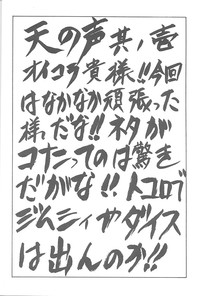 天の声其ノ壱
オイコラ貴様!!今回
はなかなか頑張った
様だな!!ネタが
コナたってのは驚き
だがな!!トコロデ
ジムニィやダイス
は出んのか!!